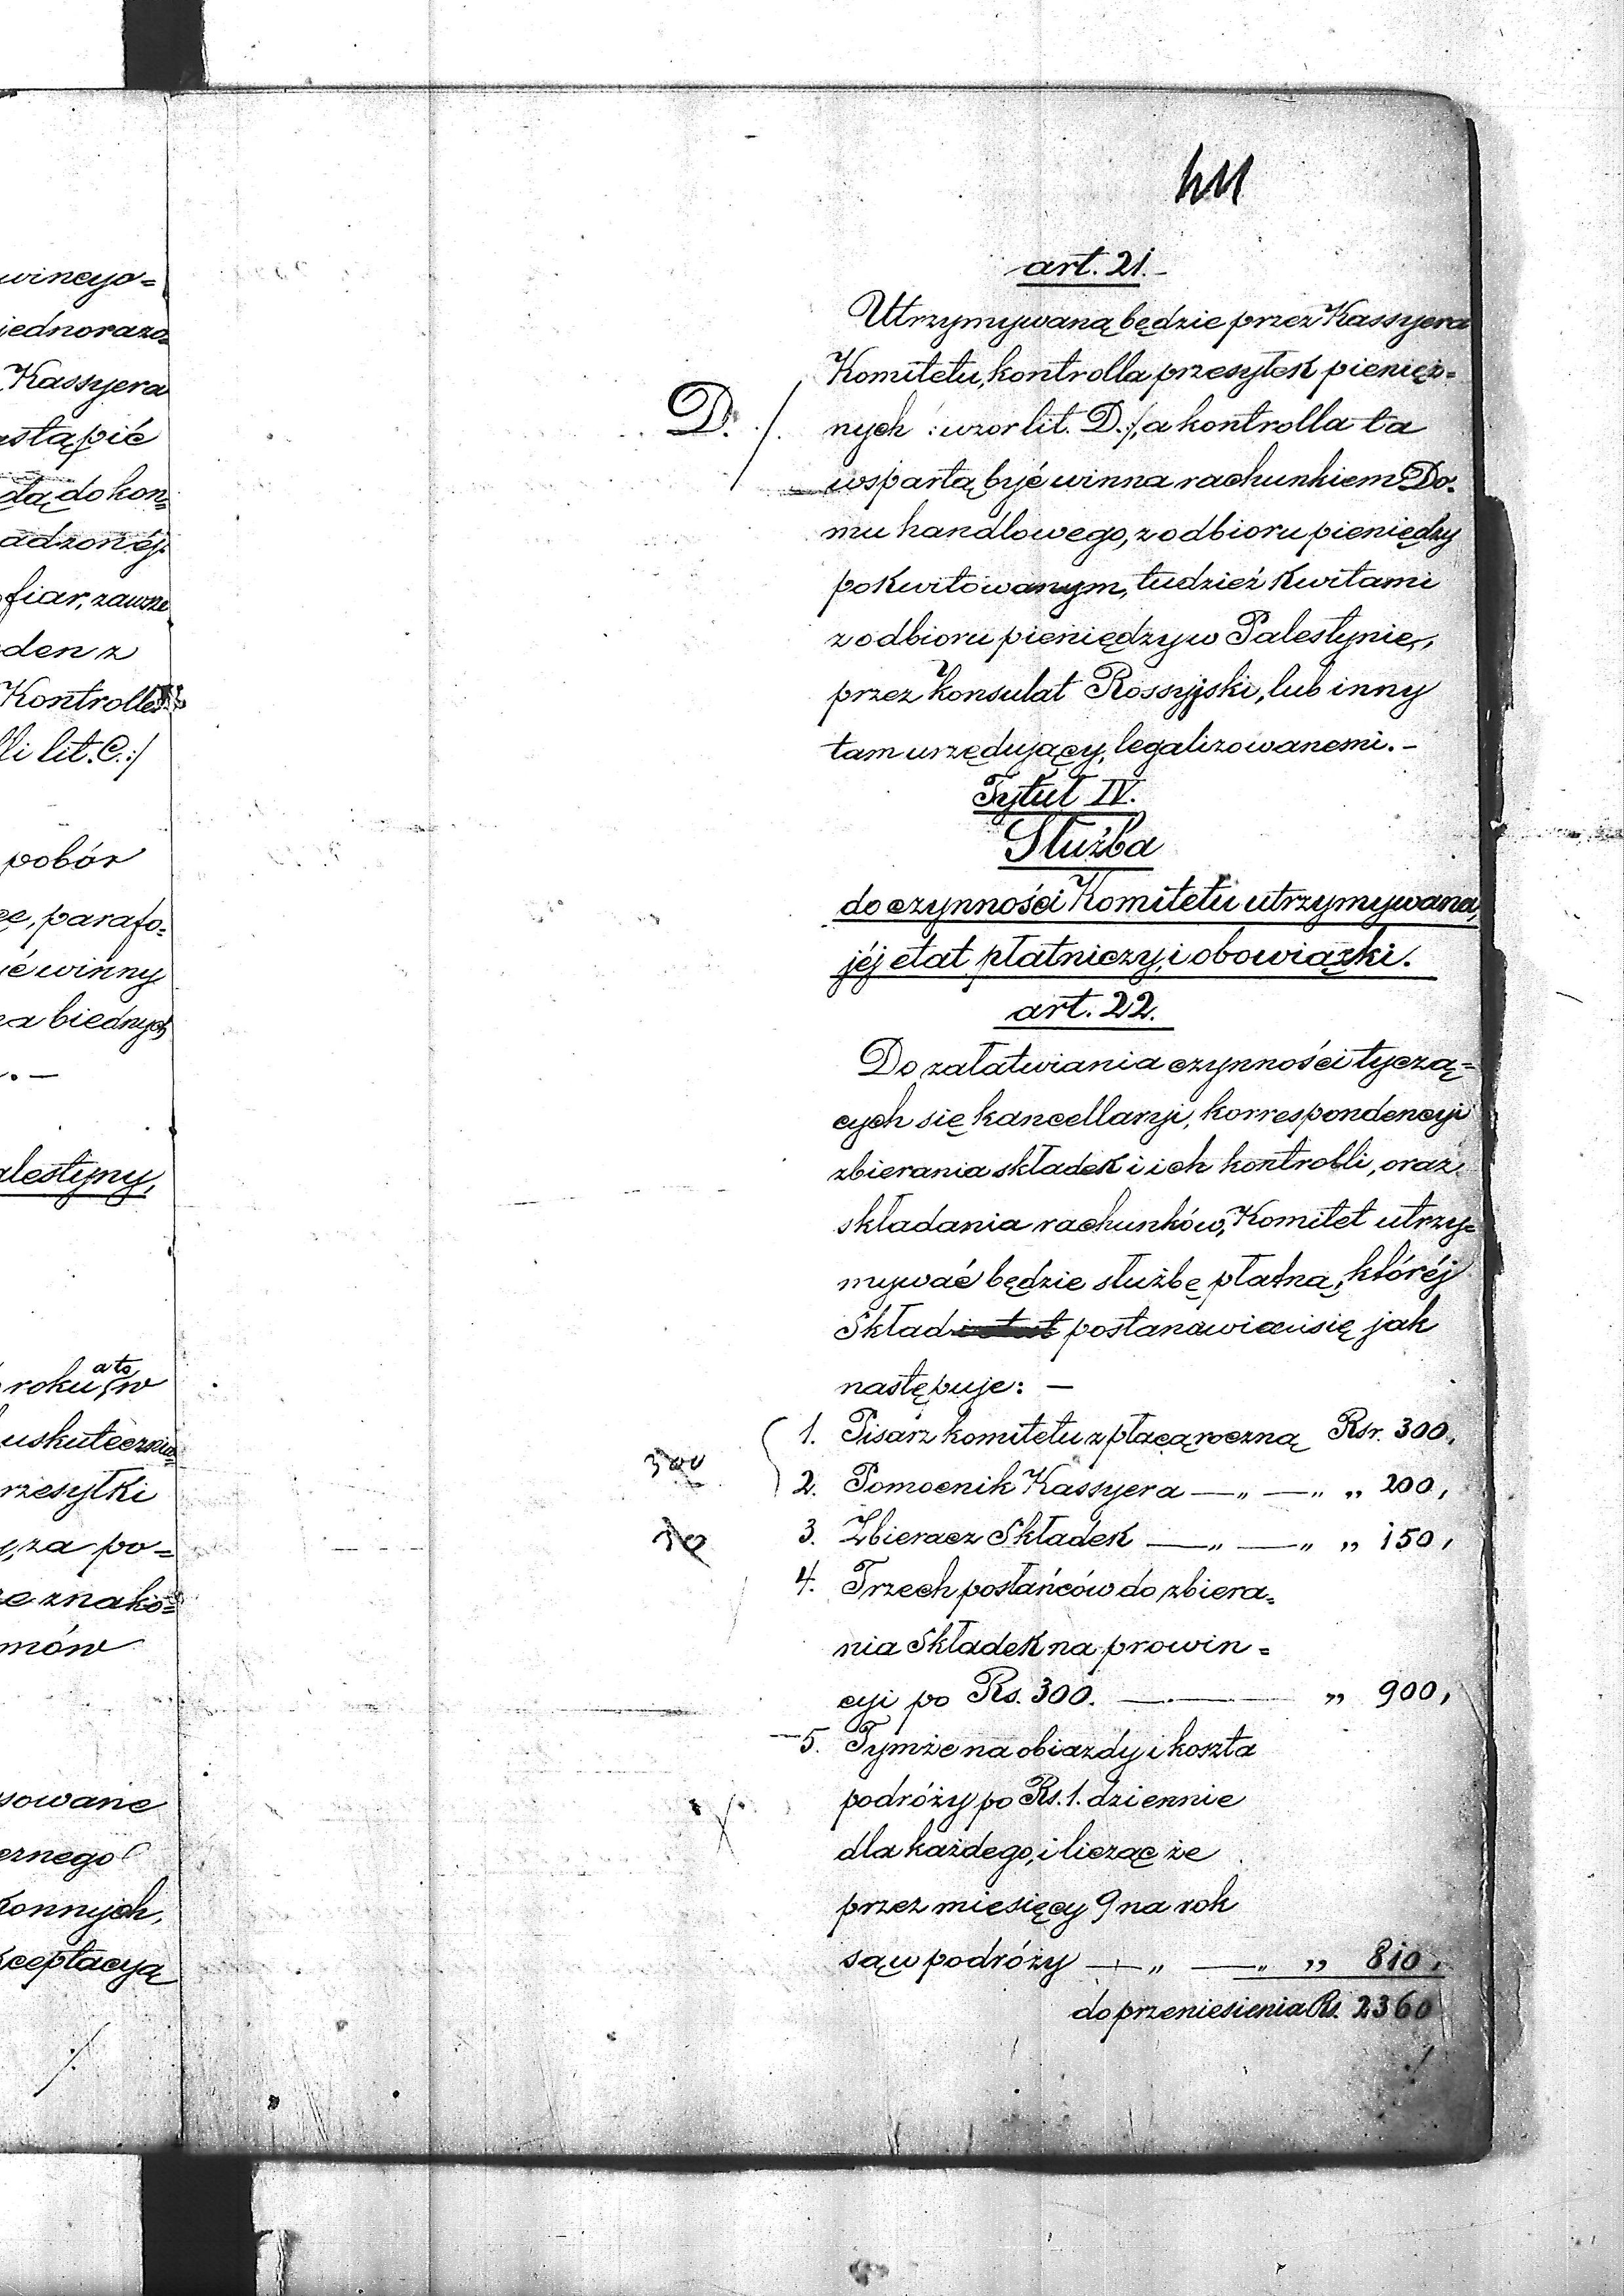 wincyo=
jednorazo=
Kassyera
stąpić
dą do kon=
adzonéj
fiar, zawsze
den z
Kontrolle
li lit. C.:/
pobór
ce, parafo=
ć winny
a biednych
. —
alestyny,
a to
roku, w
uskuteczni=
rzesyłki
za po=
e znako=
mów
sowane
cznego
konnych,
kceptacyą
./.
art. 21.
Utrzymywaną będzie przez Kassyera
Komitetu, kontrolla przesyłek pienięż=
D. ./. nych /: wzor lit. D.:/, a kontrolla ta
wspartą być winna rachunkiem Do=
mu handlowego, z odbioru pieniędzy
pokwitowanym, tudzież kwitami
z odbioru pieniędzy w Palestynie,
przez konsulat Rossyjski, lub inny
tam urzędujący, legalizowanemi. –
Tytuł IV.
Służba
do czynności Komitetu utrzymywana,
jéj etat płatniczy, i obowiązki.
art. 22.
Do załatwiania czynności tyczą=
cych się kancellaryi, korrespondencyi
zbierania składek i ich kontrolli, oraz
składania rachunków, Komitet utrzy=
mywać będzie służbę płatną, któréj
Skład postanawia się jak
następuje: —
1. Pisarz komitetu z płacą roczną Rsr. 300,
300
2. Pomocnik Kassyera — „ — „ „ 200,
3. Zbieracz Składek — „ — „ „ 150,
4. Trzech posłańców do zbiera=
nia Składek na prowin=
cyi po Rs. 300. — „ 900,
— 5. Tymże na obiazdy i koszta
podróży po Rs. 1. dziennie
dla każdego, i licząc że
przez miesięcy 9 na rok
są w podróży — „ — „ „ 810.
do przeniesienia Rs. 2360
./.